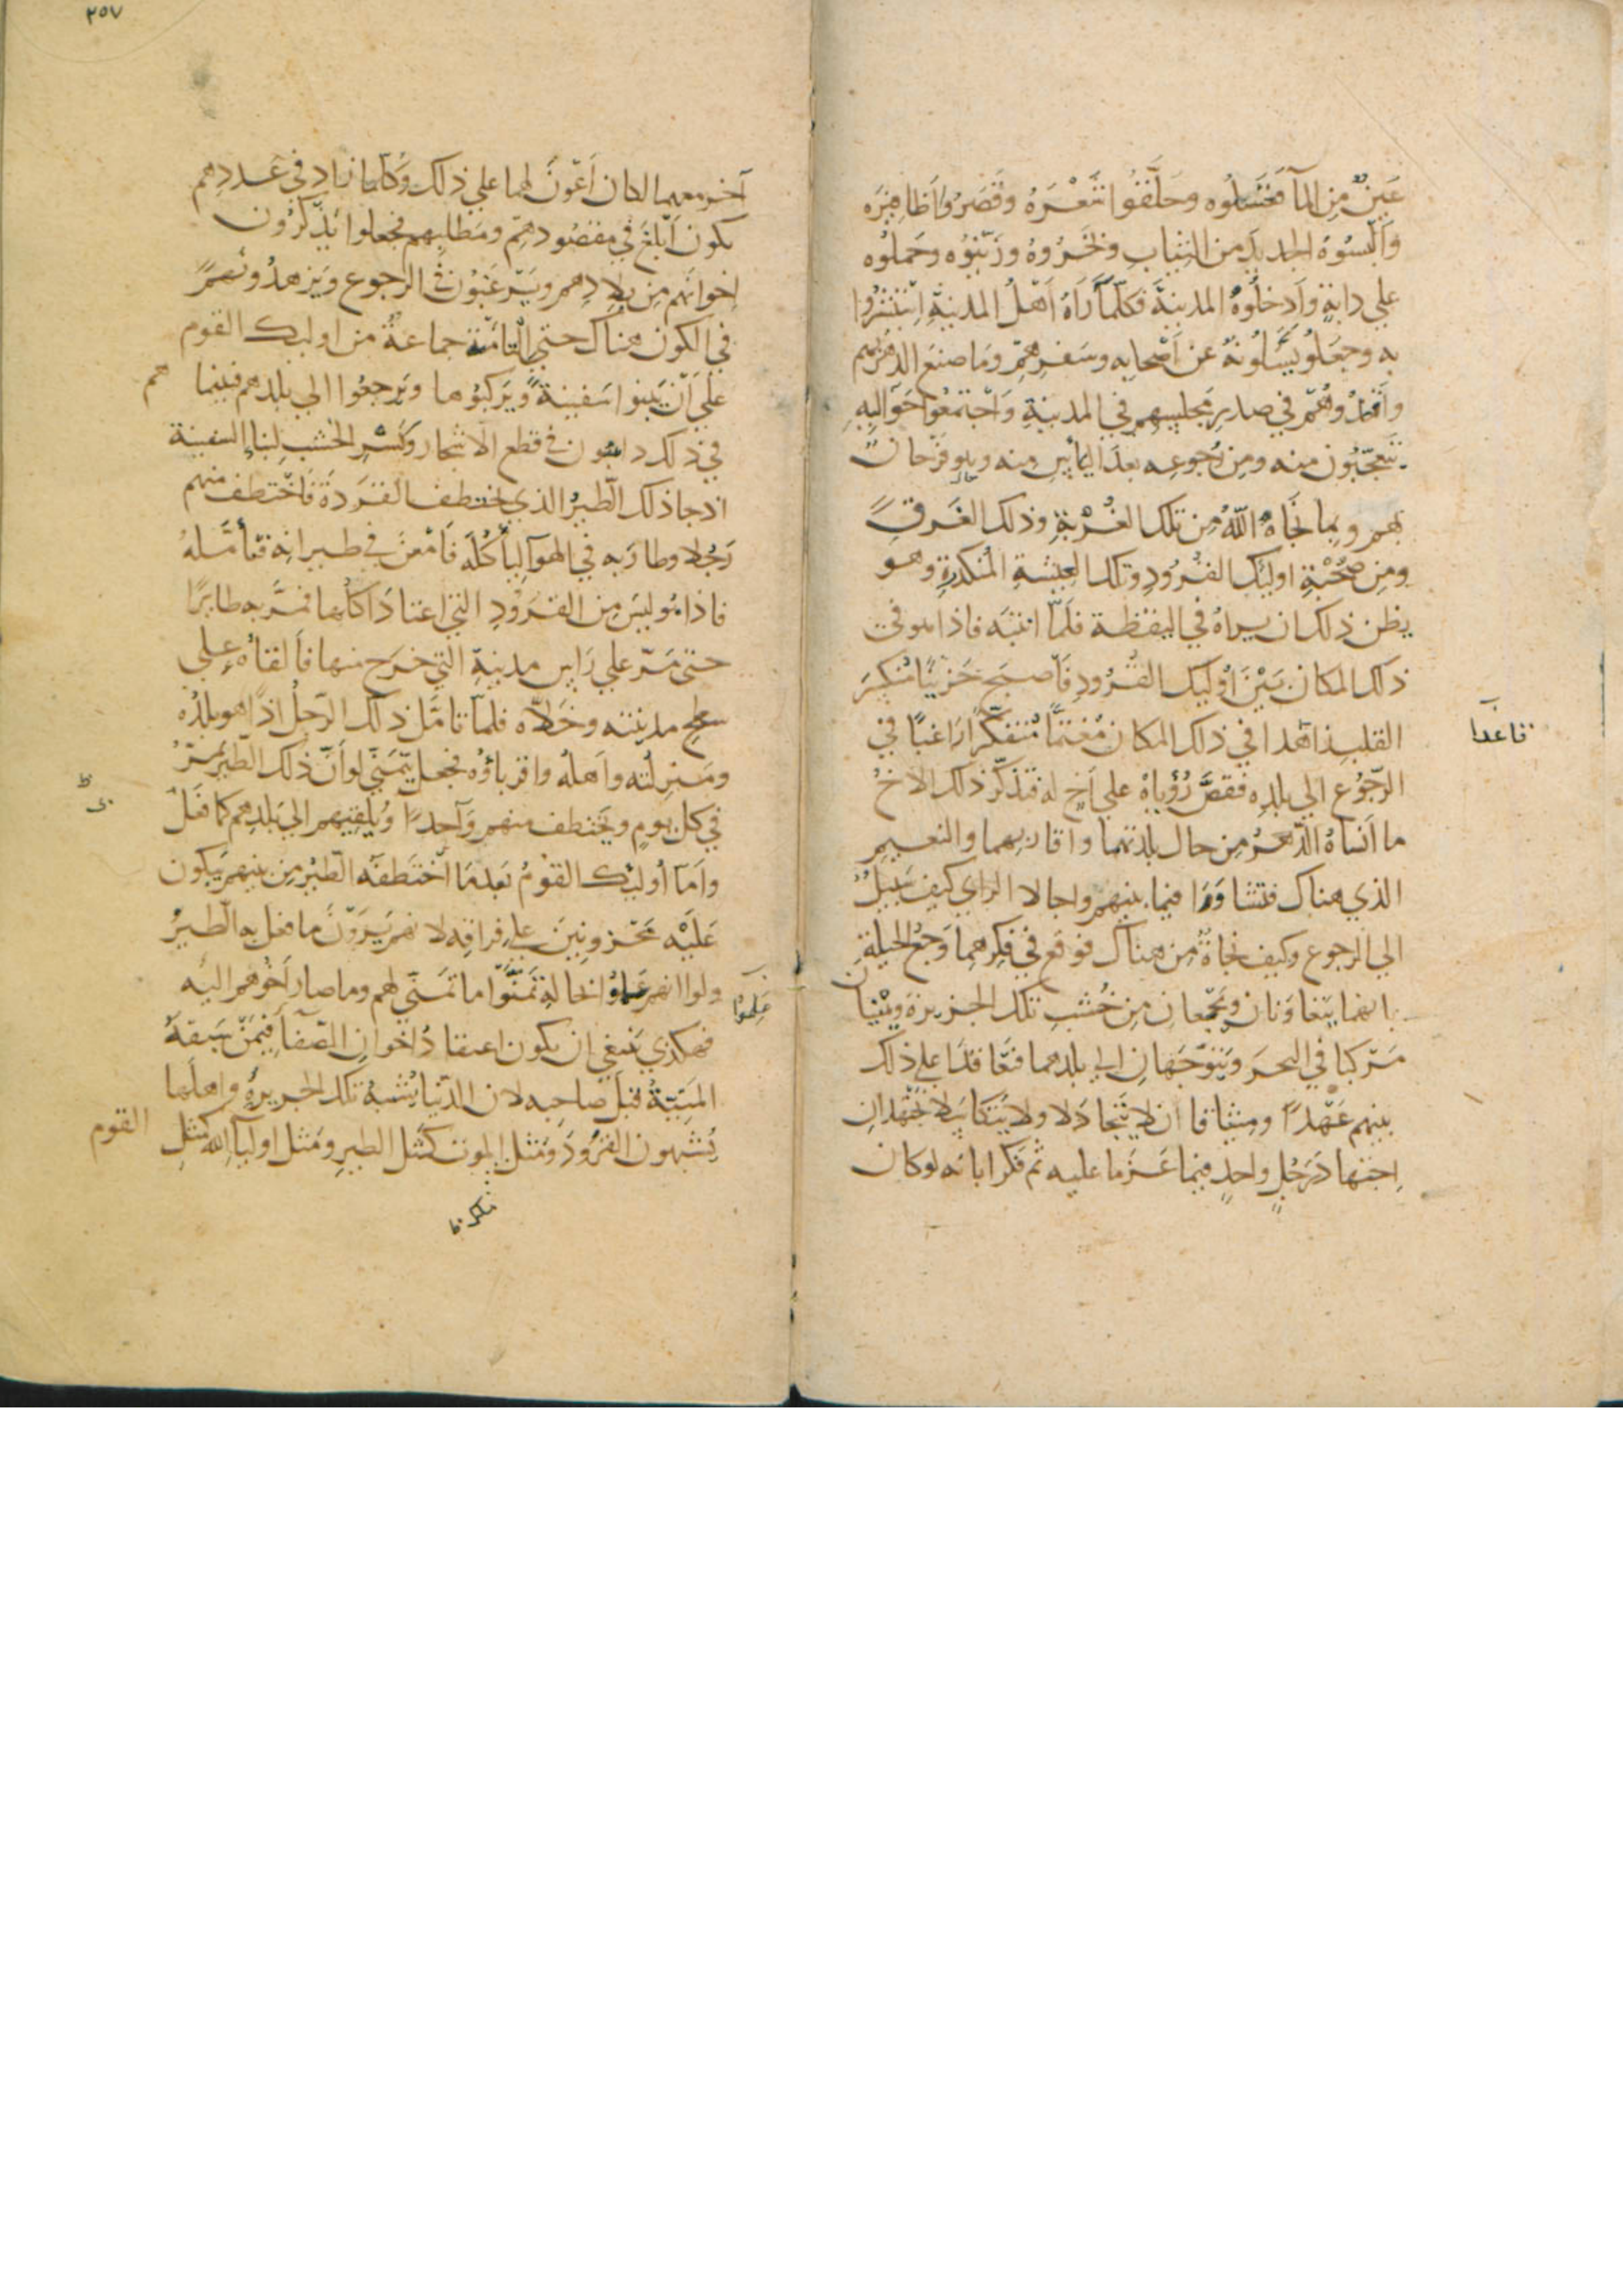 عَينٌ مِن المآ فغسَلوه وحَلَّقُوا شَعْرَهُ وقَصّرُوا اَظافِيرَه
وَاَلْبسُوهُ الجديدَ من الثياب وبَخّرُوهُ وزَيّنُوه وحَملُوه
علي دابةٍ وَاَدخلُوهُ المدينةَ فكلّما رَآهُ اَهْلُ المدينةِ اِسْتَبْشَرُوا
به وجعَلوُ يَسْأَلُونهُ عن اَصْحابِه وسَفرِهِمْ وَما صنعَ الدهرُ بهم
واَقعدُوهُ في صدرِ مجلسِهم في المدينةِ وَاجْتمعُوا حَوَاليهِ
يتعجّبُون منه ومِن رُجوعِه بعدَ اليأسِ منه وهو فَرْحانٌ
بهم وبما نجّاهُ اللّهُ مِن تلك الغُرْبةِ وذلك الغَرقِ
ومِن صُحْبَةِ اوليٰك القُرودِ وتلك العِيشةِ المُنكدِرةِ وهو
يظن ذلك ان يراهُ في اليقظة فلَمّا انتبَه فاذا هو في
ذلك المكان بَيْنَ اُوليٰك القُرودِ فَاَصبحَ حَزِينًا مُنكسِرَ
القلب زاهدا في ذلك المكان مُغْتمًّا مُتفكّرًا رَاغبًا في
قاعدا
الرّجُوع الي بلدِه فقصَّ رُؤياهُ علي اَخٍ له فتذكّر ذلك الاخُ
ما اَنساهُ الدّهرُ مِن حال بلدتهما واقاربهما والنعيمِ
الذي هناك فتشاوَرَا فيما بينهم واجالا الراي كيف سَبيلٌ
الي الرجوع وكيف نجاةٌ مِن هناك فوقع في فِكرهما وَجهُ الحيلةِ
بانهما يتعاوَنانِ ويَجْمعانِ مِن خُشبِ تلك الجزيرة ويبنيانِ
مَرْكبا في البحرَ ويَتوجّهانِ الي بلدهما فتَعاقدَا علي ذلك
بينهم عَهْدًا وميثاقا ان لا يتخاذلا ولا يَتكاسَلا بل يجْتهدانِ
اِجتهادَ رَجُلٍ واحدٍ فيما عَزما عليه ثم فكرا بانه لو كان
٢٥٧
آخر معهما لكان اَعْونَ لهما علي ذلك وَكُلّما زاد في عددهم
يكون اَبلغَ في مقصُودهِمْ ومَطلبهم فجعلوا يُذَكّرُون
اِخوانَهم مِن بلادِهم ويُرَغّبُون في الرجوع ويَزهدُونهم
في الكون هناك حتي التأمَتْ جماعةٌ من اوليك القوم
علي اَنْ يَبنوا سَفينةً ويَركبُوها ويَرجعُوا الي بلدهم فبينما
هم
في ذلك دائبون في قطع الاشجار وكَسْرِ الخشب لبنا السفينة
اذ جا ذلك الطيرُ الذي يختطف القرَدةَ فَاختطف منهم
رَجُلا وطارَ به في الهوآ ليأكُلَه فَامعنَ في طيرانِه تأمَّلهُ
فاذا هُو ليس مِن القرودِ التي اعتادَ اكلها فمرَّ به طايرًا
حتي مَرّ علي رَاسِ مدينةِ التي خرَج منها فاَلقاهُ علي
سطح مدينته وخلاّه فلمّا تأمّل ذلك الرّجلُ اذا هو بلدُه
ومَنزلُه واَهلهُ واقرباؤُه فجعل يتمنّي لو اَنّ ذلك الطيرَ يَمُرُّ
في كل يومٍ ويختطف منهم وَآحدًا ويُلقيهم الي بلدهم كما فعَلَ
وامّا اُوليك القومُ بَعدمَا اخْتطَفَه الطيرُ مِن بينهم يَبكون
عَلَيْه مَحْزونِينَ علي فِراقِه لانهم يَرَوْنَ ما فعل به الطيرُ
ولو انهم عَلموا بحالِه تمَنَّوْا ما تمنّي لهم وما صار اَخُوهم اليه
عَلِموُا
فهكذي ينبغي ان يكون اعتقادُ اخوان الصّفآ فِيمَنْ سَبقَهُ
المَنِيّةُ قبل صاحبه لان الدّنيا تُشْبهُ تلك الجزيرةَ واهلَها
يُشبهون القرُودَ وَمثلَ الموت كمثَل الطيرِ ومَثل اوليآ اللّه كمثلِ
القوم